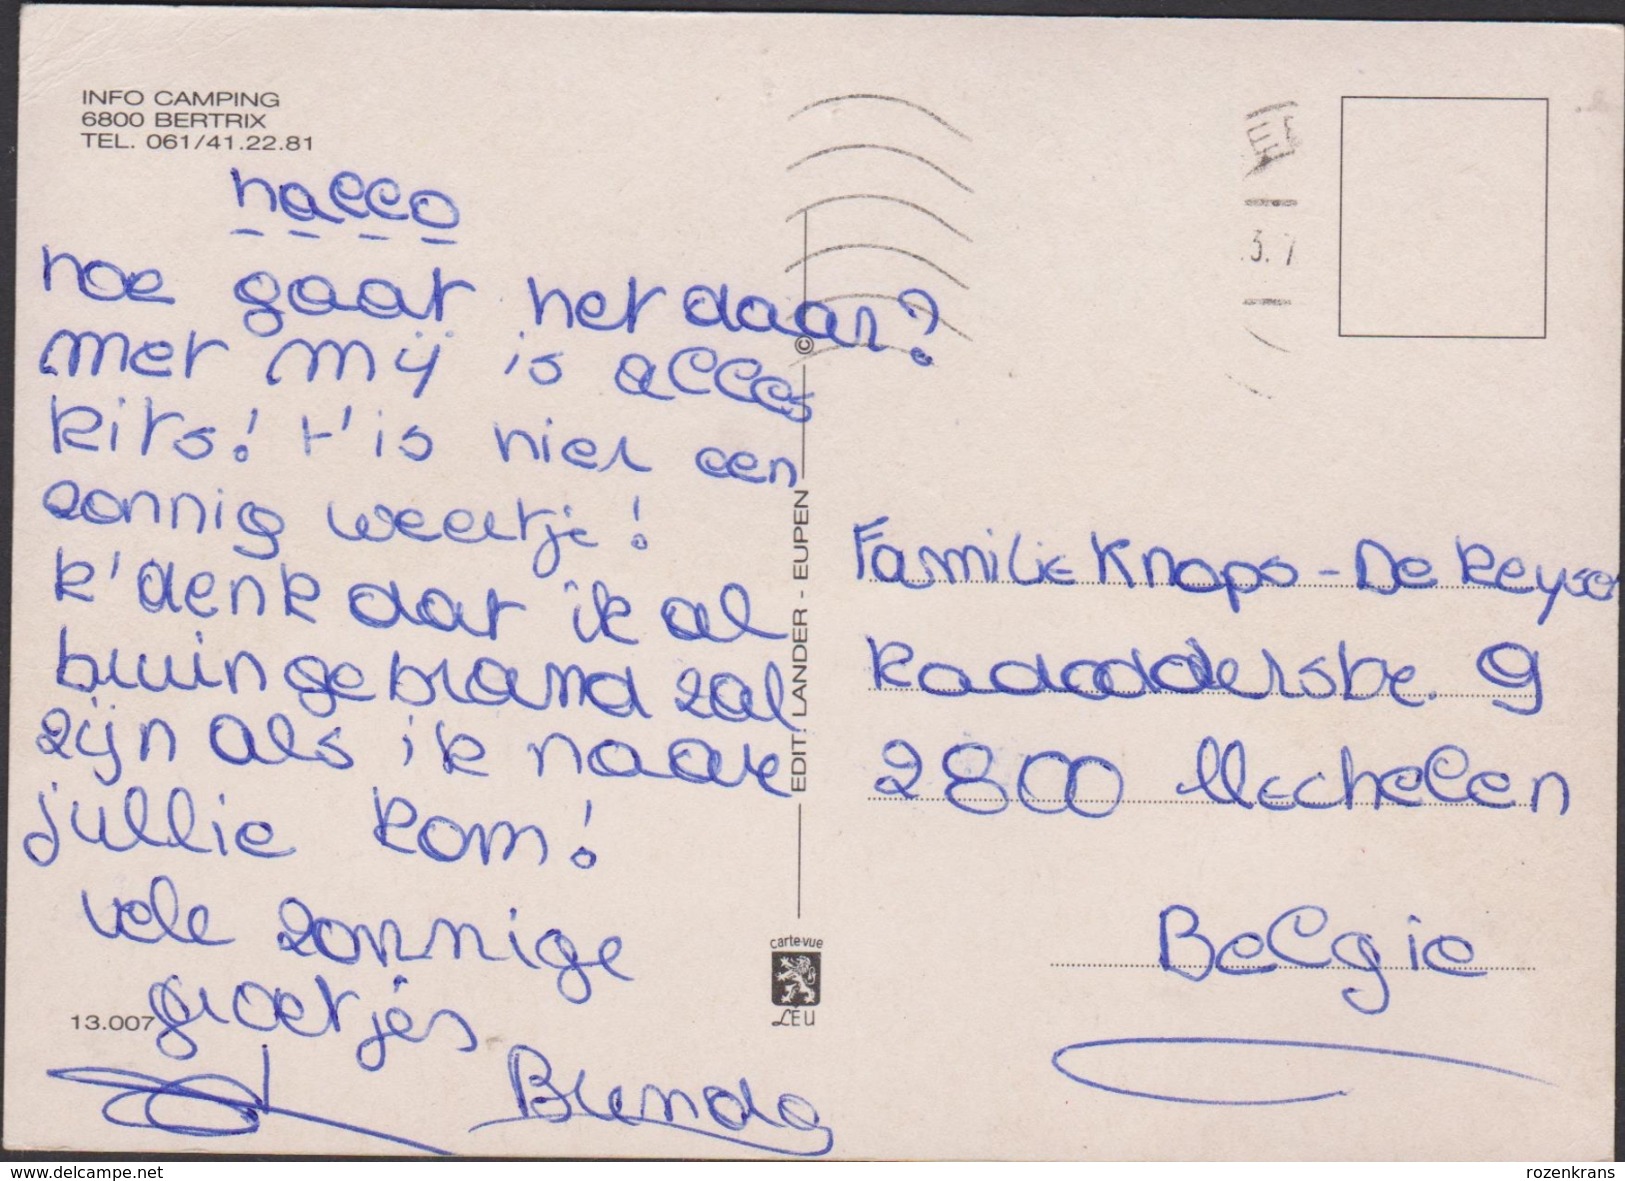 INFO CAMPING
6800 BERTRIX
TEL. 061/41.22.81
hallo
hoe gaat het daar?
met mij is alles
kits! t'is niet een
zonnig weertje!
k'denk dat ik al
bruin gebrand zal
zijn als ik naar
jullie kom!
vele zonnige
groetjes
Brenda
13.007
EDIT. LANDER - EUPEN ©
carte-vue
LEU
3. 7
Familie Knops - De Keyser
9
2800 Mechelen
Belgie
www.delcampe.net
rozenkrans